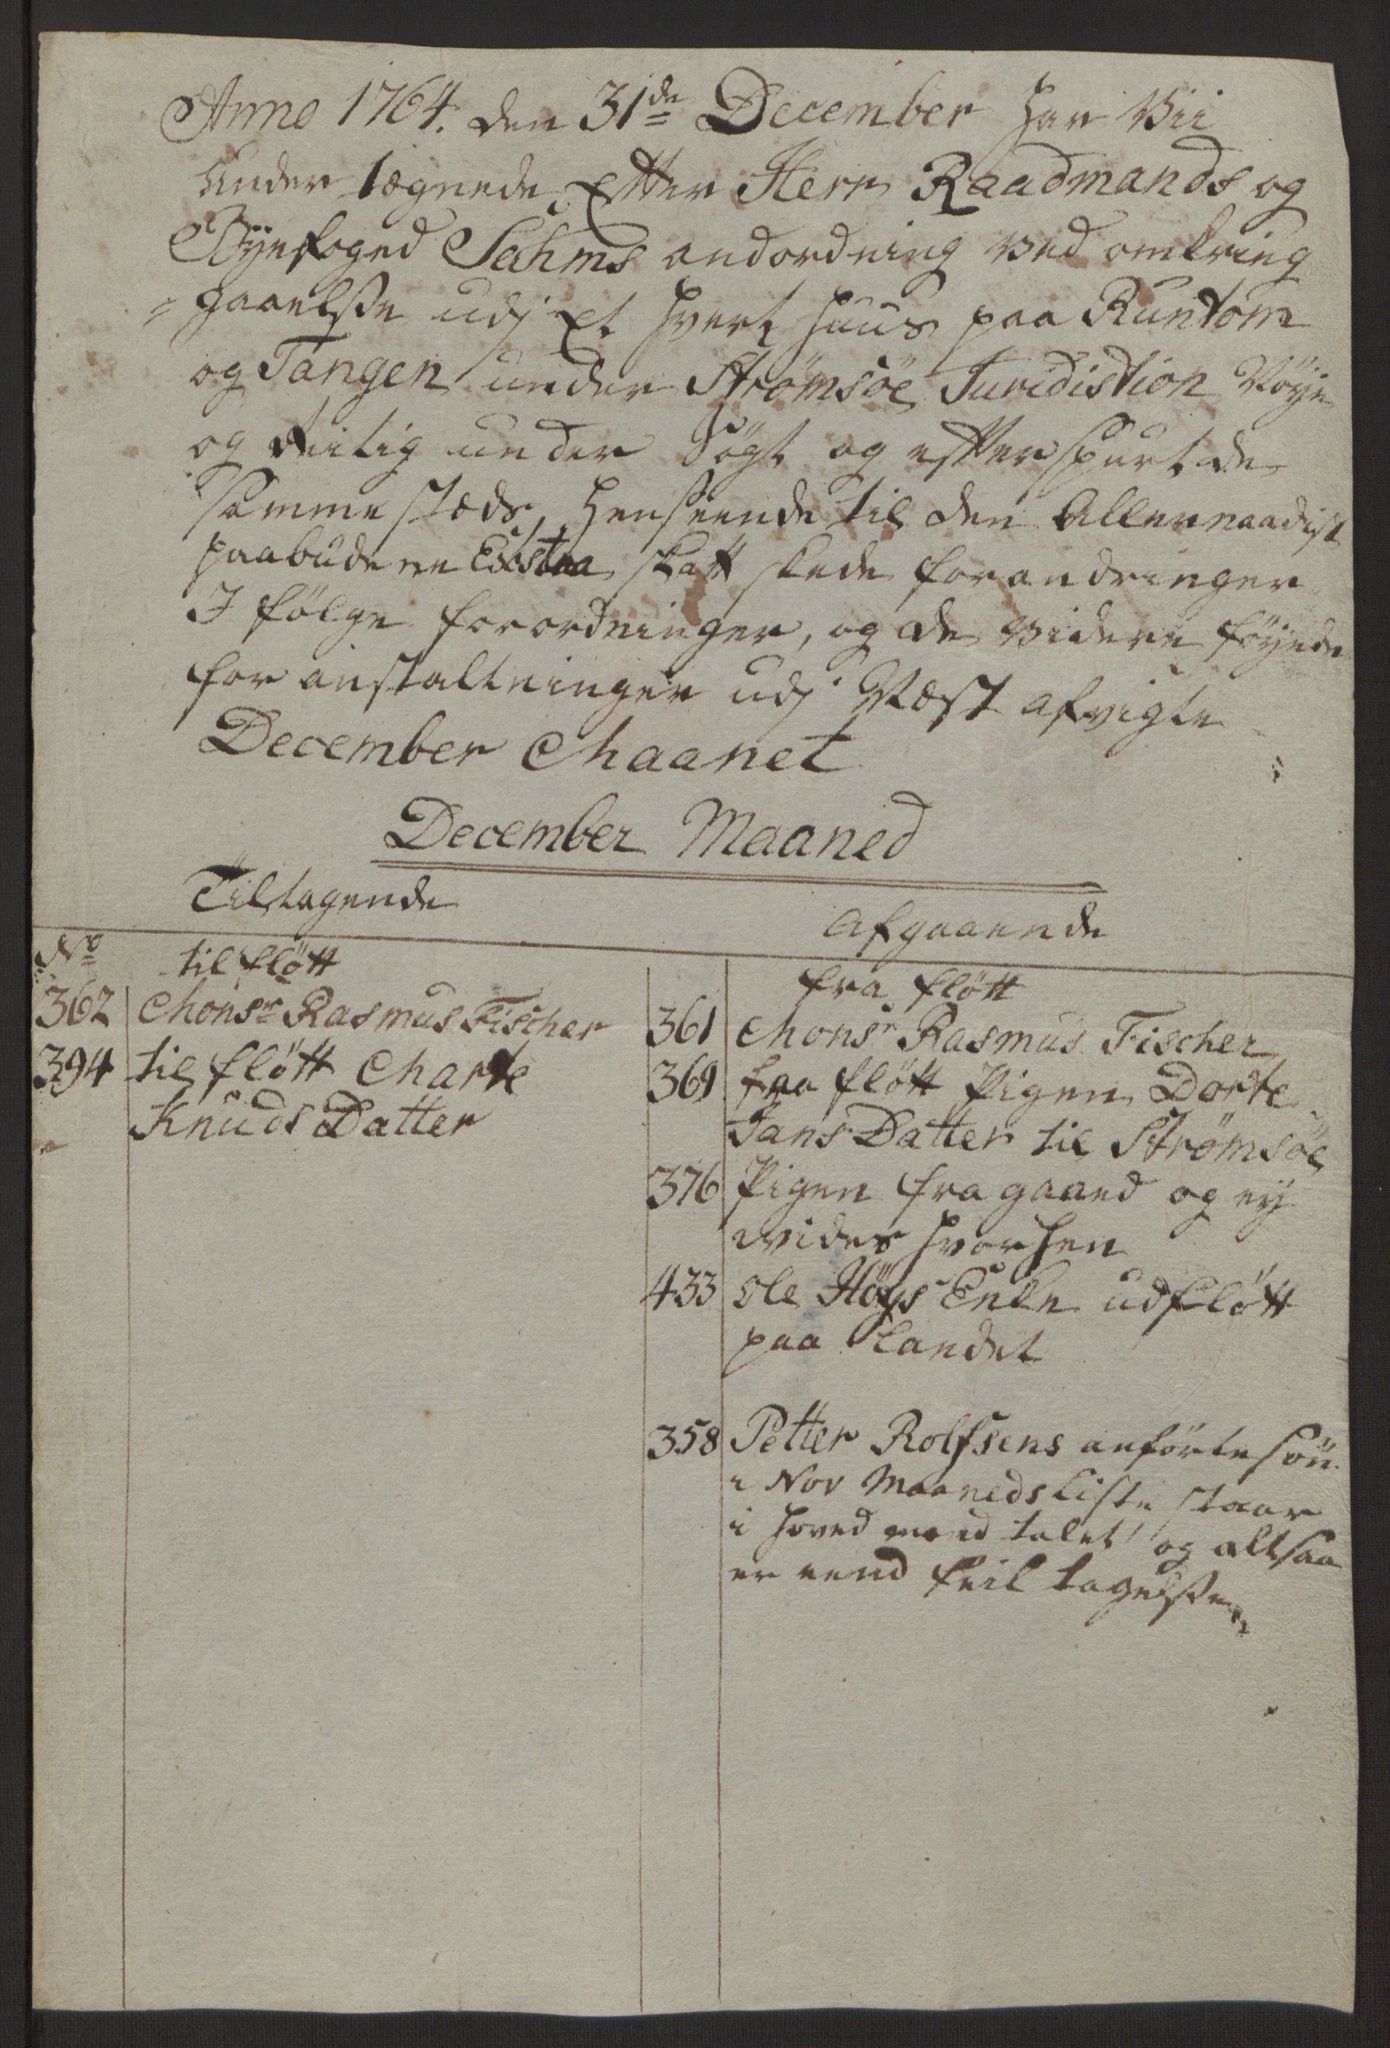 Anno 1764. den 31de December har Vii
Under tegnede, Efter Herr Raadmands og
Byefoged Sahms andordning ved omkring
= gaaelsse udj Et hvert Huus paa Rundtom
og Tangen under Strömsöe Juridistion Nöye
og flitig under Sögt og efterspurt de
samme stæds, henseende til den Allernaadist
paabudene Exstraa skatt skede forandringer
I følge forordninger, og de videre föyede
for anstaltninger udj Næst afvigte
December Maanet
December Maaned
Tiltagende
Afgaaende
No
til flött
fra flött
362 Monsr Rasmus Fischer
361 Monsr Rasmus Fischer
394 til flött Marte
Knuds Datter
369 fra flött Pigen Dorte
Jans Datter til Strømsöe
376 Pigen fragaaed og ey
vides hvorhen
433 Ole Höys Enke udflött
paa Landet
358 Petter Rolfsens anförte sön
i Nov Maaneds Liste staar
i hoved mand talet og altsaa
er en feil tagelsse